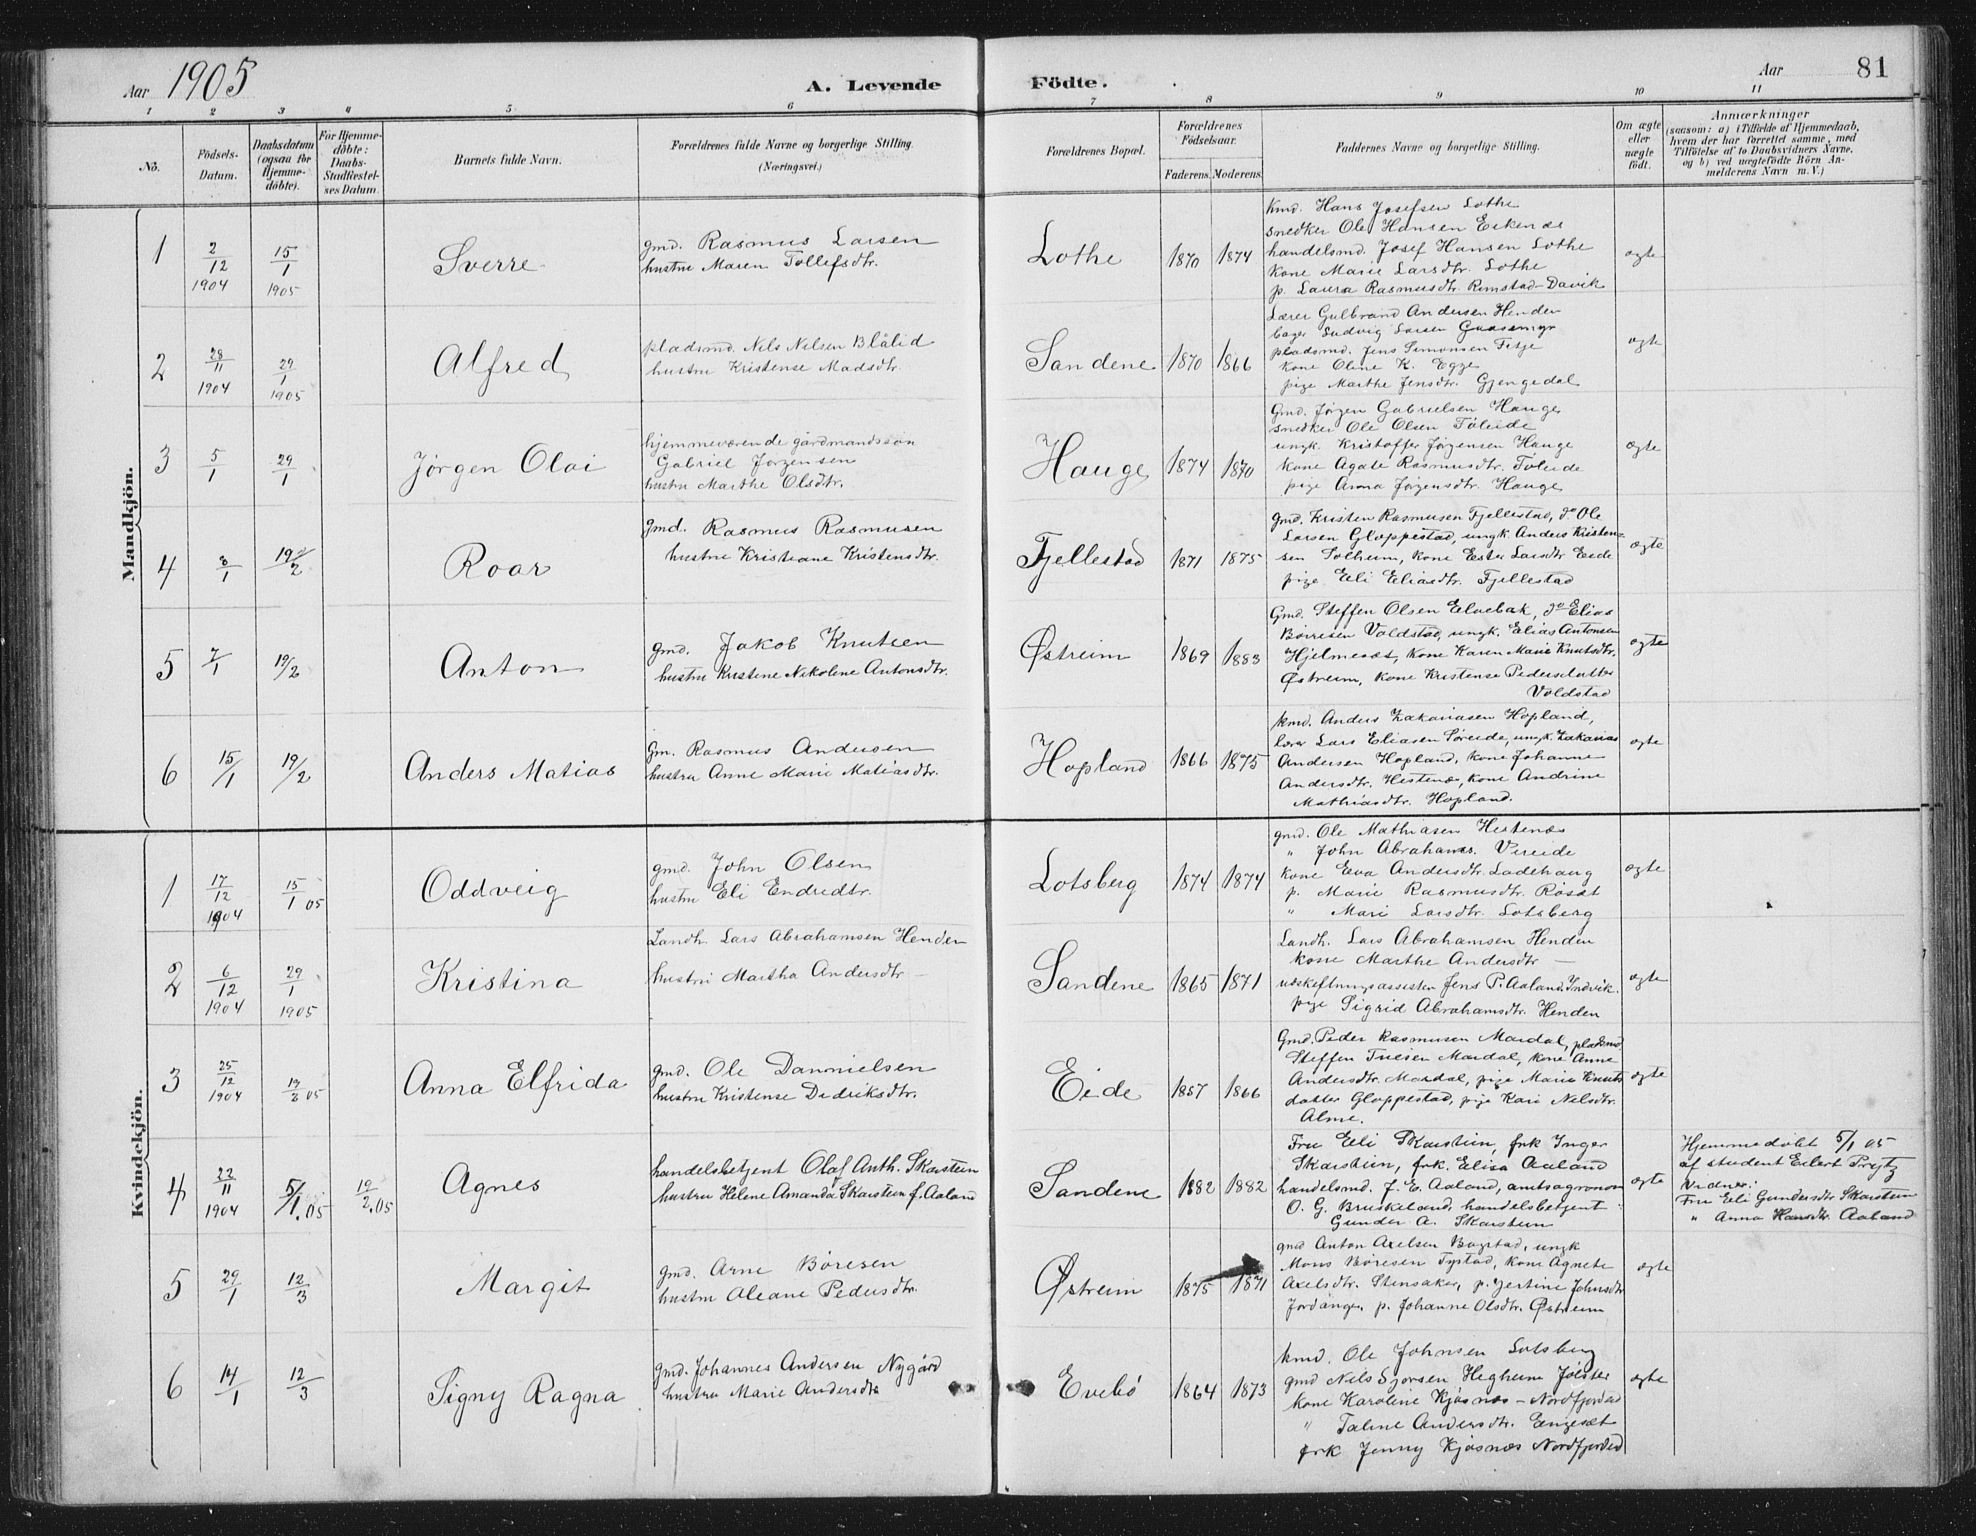 Aar 1905
A. Levende
Födte.
Aar
81
1 2 3 4 5 6 7 8 9 10 11
No.
Födsels-
Datum.
Daabsdatum
(ogsaa for
Hjemme-
döbte).
For Hjemme-
döbte:
Daabs-
Stadfæstel-
ses Datum.
Barnets fulde Navn.
Forældrenes fulde Navne og borgerlige Stilling.
(Næringsvei.)
Forældrenes Bopæl.
Forældrenes
Födselsaar.
Faderens. Moderens.
Faddernes Navne og borgerlige Stilling.
Om ægte
eller
uægte
födt.
Anmærkninger
(saasom: a) i Tilfælde af Hjemmedaab,
hvem der har forrettet samme, med
Tilföielse af to Daabsvidners Navne,
og b) ved uægtefödte Börn An-
melderens Navn m. V.)
Mandkjön.
1
2/12
1904
15/1
1905
Sverre
gmd. Rasmus Larsen
hustru Maren Tollefsdtr.
Lothe
1870
1874
Kmd. Hans Josefsen Lothe
snedker Ole Hansen Eikenæs
handelsmd. Josef Hansen Lothe
Kone Marie Larsdtr. Lothe
p. Laura Rasmusdtr. Rimstad-Davik
ægte
2
28/11
1904
29/1
1905
Alfred
pladsmd. Nils Nilsen Blålid
hustru Kristense Madsdtr.
Sandene
1870
1866
Lærer Gulbrand Andersen Henden
bager Ludvig Larsen Gaasemyr
pladsmd. Jens Simonsen Fitje
Kone Oline K. Egge
pige Marthe Jensdtr. Gjengedal
ægte
3
5/1
29/1
Jörgen Olai
hjemmeværende gårdmandssön
Gabriel Jörgensen
hustru Marthe Olsdtr.
Hauge
1874
1870
Gmd. Jörgen Gabrielsen Hauge
snedker Ole Olsen Föleide
ungk. Kristoffer Jörgensen Hauge
Kone Agate Rasmusdtr. Föleide
pige Anna Jörgensdtr. Hauge
ægte
4
8/1
19/2
Roar
gmd. Rasmus Rasmusen
hustru Kristiane Kristensdtr.
Fjellestad
1871
1875
gmd. Kristen Rasmusen Fjellestad, do Ole
Larsen Gloppestad, ungk. Anders Kristen-
sen Solheim, kone Ester Larsdtr. Eide
pige Eli Eliasdtr. Fjellestad
ægte
5
7/1
19/2
Anton
gmd. Jakob Knutsen
hustru Kristine Nikoline Antonsdtr.
Østreim
1869
1883
Gmd. Steffen Olsen Elvebak, do Elias
Börresen Voldstad, ungk. Elias Antonsen
Hjelmeset, Kone Karen Marie Knutsdtr.
Østreim, kone Kristense Pedersdatter
Voldstad
ægte
6
15/1
19/2
Anders Matias
gm. Rasmus Andersen
hustru Anne Marie Matiasdtr.
Hopland
1866
1875
kmd. Anders Zakariasen Hopland,
lærer Lars Eliasen Søreide, ungk. Zakarias
Andersen Hopland, kone Johanne
Andersdtr. Hestenes, kone Andrine
Mathiasdtr. Hopland.
ægte
Kvindekjön.
1
17/12
1904
15/1 05
Oddveig
gmd. John Olsen
hustru Eli Endredtr.
Lotsberg
1874
1874
gmd. Ole Mathiasen Hestenes
" John Abrahams. Vereide
kone Eva Andersdtr. Ladehaug
p. Marie Rasmusdtr. Röset
" Mari Larsdtr. Lotsberg
ægte
2
6/12
1904
29/1
1905
Kristina
Landh. Lars Abrahamsen Henden
hustru Martha Andersdtr —
Sandene
1865
1871
Landh. Lars Abrahamsen Henden
kone Marthe Andersdtr —
udskiftningsassisten Jens P. Aaland Indvik.
pige Sigrid Abrahamsdtr. Henden
ægte
3
25/12
1904
19/2 05
Anna Elfrida
gmd. Ole Dannielsen
hustru Kristense Didriksdtr.
Eide
1857
1866
Gmd. Peder Rasmusen Mardal, pladsmd
Steffen Mardal, kone Anne
Andersdtr. Mardal, pige Marie Knuts
datter Gloppestad, pige Kari Nilsdtr.
Alme.
ægte
4
22/11
1904
5/1.05
19/2.05
Agnes
handelsbetjent Olaf Anth. Skarstein
hustru Helene Amanda Skarstein f. Aaland
Sandene
1882
1882
Fru Eli Skarstein, frk Inger
Skarstein, frk. Elisa Aaland
handelsmd. J. E. Aaland, amtsagronom
O. G. Bruskeland, handelsbetjent
Gunder A. Skarstein
ægte
Hjemmedöbt 5/1 05
af student Eilert Prytz
Vidner:
Fru Eli Gundersdtr Skarstein
" Anna Hansdtr. Aaland
5
29/1
12/3
Margit
gmd. Arne Böresen
hustru Oleane Pedersdtr.
Østreim
1875
1871
gmd Anton Axelsen Bogstad, ungk
Mons Böresen Tystad, kone Agnete
Axelsdtr. Stensaker, p. Jertine Johnsdtr
Jordånger, p. Johanne Olsdtr. Østreim
ægte
6
14/1
12/3
Signy Ragna
gmd. Johannes Andersen Nygård
hustru Marie Andersdtr
Evebö
1864
1873
kmd. Ole Johnsen Lotsberg
gmd Nils Sjorsen Hegheim Jölster
kone Karoline Kjösnes - Nordfjordeid
" Taline Andersdtr. Engeset
frk Jenny Kjösnes Nordfjordeid
ægte